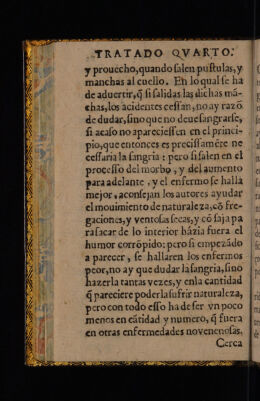 TRATADO QVARTO.
y prouecho, quando salen pustulas, y
manchas al cuello. En lo qual se ha
de aduertir, q̃ si salidas las dichas mã-
chas, los acidentes cessan, no ay razõ
de dudar, sino que no deue sangrarse,
si acaso no apareciessen en el princi-
pio, que entonces es precissamẽte ne
cessaria la sangria: pero si salen en el
processo del morbo, y del aumento
para adelante, y el enfermo se halla
mejor, aconsejan los autores ayudar
el mouimiento de naturaleza, cõ fre-
gaciones, y ventosas secas, y cõ saja pa
ra sacar de lo interior házia fuera el
humor corrõpido: pero si empezãdo
a parecer, se hallaren los enfermos
peor, no ay que dudar la sangria, sino
hazerla tantas vezes, y en la cantidad
q̃ pareciere poderla sufrir naturaleza,
pero con todo esso ha de ser vn poco
menos en cãtidad y numero, q̃ fuera
en otras enfermedades no venenosas.
Cerca